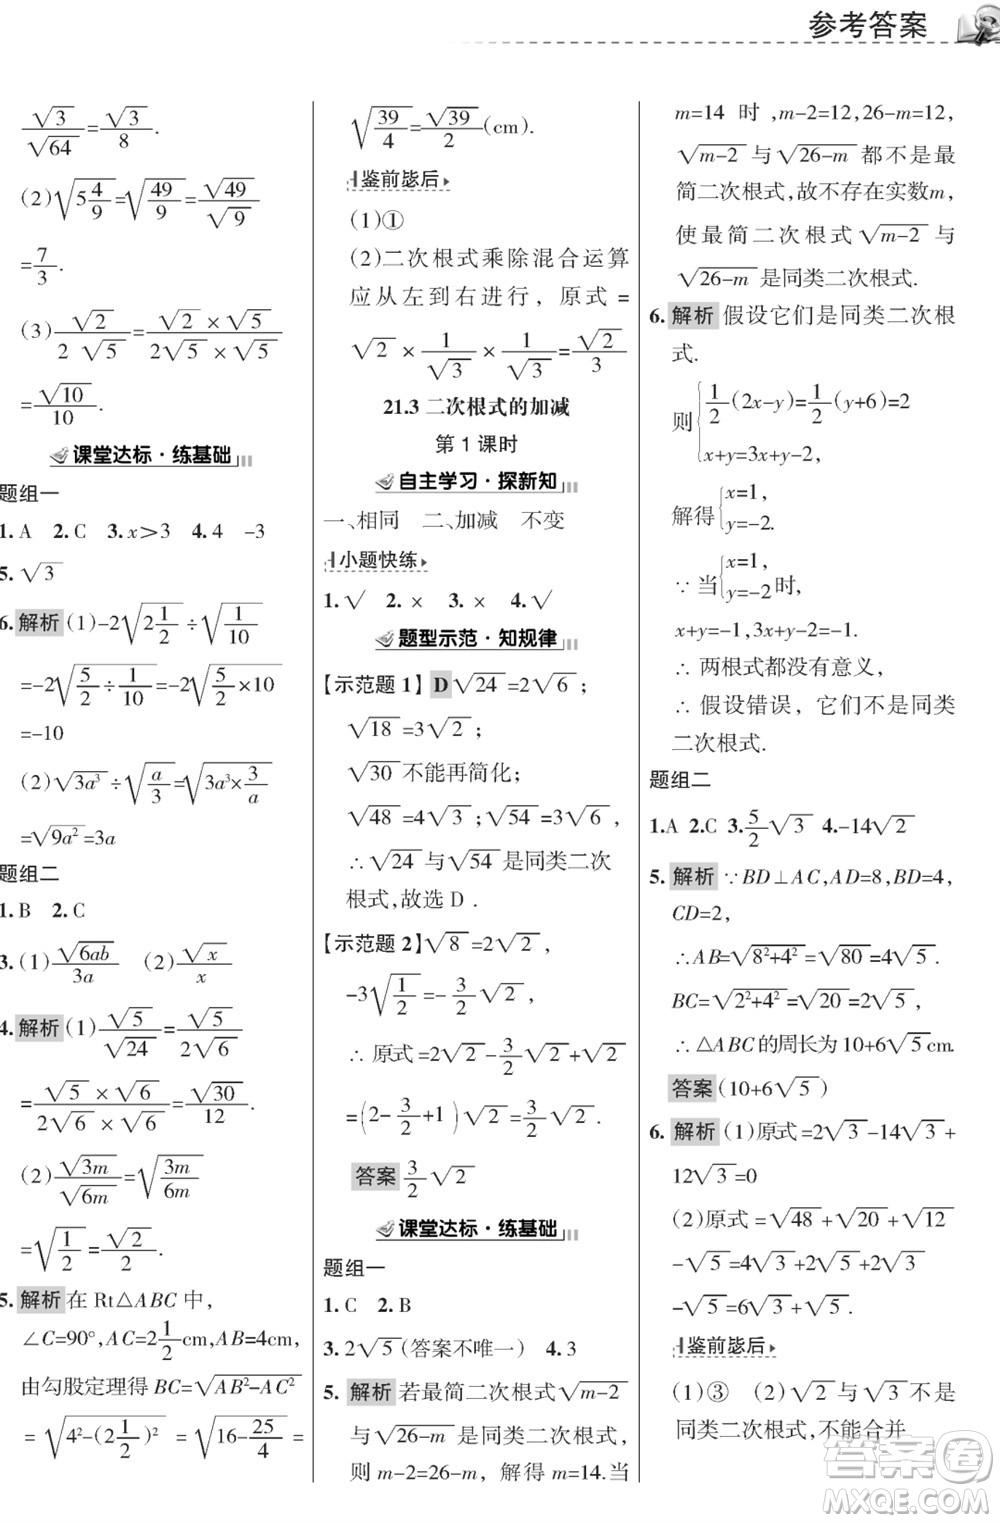 参考答案
√3/√64=√3/8.
(2)√(5 4/9)=√(49/9)=√49/√9
=7/3.
(3)√2/(2√5)=(√2×√5)/(2√5×√5)
=√10/10.
课堂达标·练基础
题组一
1. A 2. C 3. x≥3 4. 4 -3
5. √3
6. 解析 (1)-2√(2 1/2)÷√(1/10)
=-2√(5/2÷1/10)=-2√(5/2×10)
=-10
(2)√(3a³)÷√(a/3)=√(3a³×3/a)
=√(9a²)=3a
题组二
1. B 2. C
3. (1)√(6ab)/3a (2)√x/x
4. 解析 (1)√5/√24=√5/(2√6)
=(√5×√6)/(2√6×√6)=√30/12.
(2)√(3m)/√(6m)=√(3m/6m)
=√(1/2)=√2/2.
5. 解析 在 Rt△ABC 中,
∠C=90°,AC=2 1/2 cm,AB=4cm,
由勾股定理得 BC=√(AB²-AC²)
=√(4²-(2 1/2)²)=√(16-25/4)=
√(39/4)=√39/2(cm).
鉴前毖后
(1)①
(2)二次根式乘除混合运算
应从左到右进行，原式=
√2×1/√3×1/√3=√2/3
21.3 二次根式的加减
第 1 课时
自主学习·探新知
一、相同 二、加减 不变
小题快练
1. √ 2. × 3. × 4. √
题型示范·知规律
【示范题 1】 D √24=2√6;
√18=3√2;
√30不能再简化;
√48=4√3;√54=3√6,
∴√24与√54是同类二次
根式,故选 D .
【示范题 2】√8=2√2,
-3√(1/2)=-3/2√2,
∴ 原式=2√2-3/2√2+√2
=(2-3/2+1)√2=3/2√2.
答案 3/2√2
课堂达标·练基础
题组一
1. C 2. B
3. 2√5(答案不唯一) 4. 3
5. 解析 若最简二次根式√(m-2)
与√(26-m)是同类二次根式,
则 m-2=26-m,解得 m=14.当
m=14 时,m-2=12,26-m=12,
√(m-2)与√(26-m)都不是最
简二次根式,故不存在实数m,
使最简二次根式√(m-2)与
√(26-m)是同类二次根式.
6. 解析 假设它们是同类二次根
式.
则{1/2(2x-y)=1/2(y+6)=2
x+y=3x+y-2,
解得{x=1,
y=-2.
∵ 当{x=1,
y=-2时,
x+y=-1,3x+y-2=-1.
∴ 两根式都没有意义,
∴ 假设错误,它们不是同类
二次根式.
题组二
1.A 2.C 3.5/2√3 4.-14√2
5. 解析 ∵BD⊥AC,AD=8,BD=4,
CD=2,
∴AB=√(8²+4²)=√80=4√5.
BC=√(2²+4²)=√20=2√5,
∴△ABC的周长为10+6√5cm.
答案 (10+6√5)
6. 解析 (1)原式=2√3-14√3+
12√3=0
(2)原式=√48+√20+√12
-√5=4√3+2√5+2√3
-√5=6√3+√5.
鉴前毖后
(1)③ (2)√2与√3不是
同类二次根式,不能合并.
答案圈
MXQE.COM